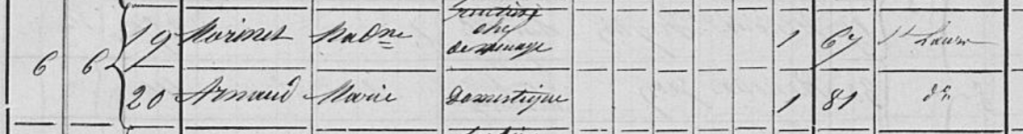 19 Morinet Madne Rentière chef de ménage 1 67 St Laurs
6 6
20 Arnaud Marie Domestique 1 81 do